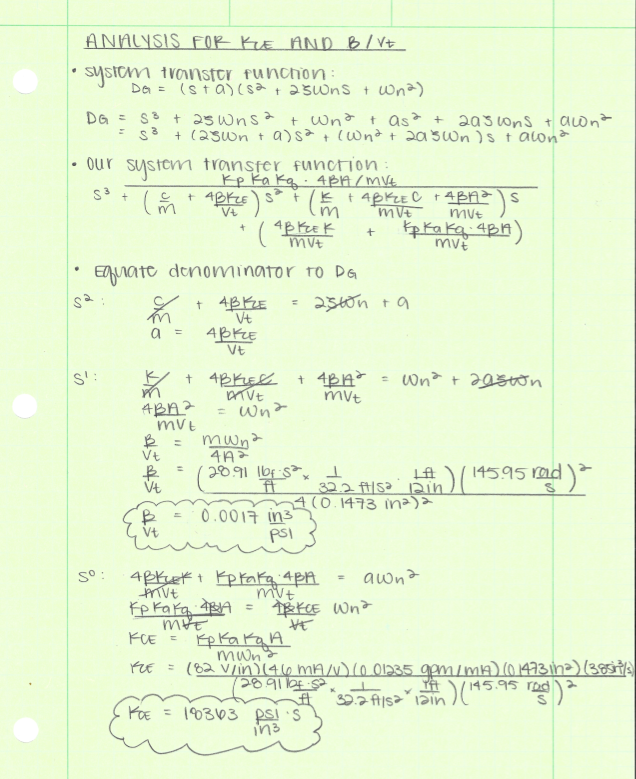 ANALYSIS FOR KCE AND B/Vt
• system transfer function:
DG = (s + a)(s² + 2ζωns + ωn²)
DG = s³ + 2ζωns² + ωn² + as² + 2aζωns + aωn²
= s³ + (2ζωn + a)s² + (ωn² + 2aζωn)s + aωn²
• our system transfer function:
KpKaKq · 4βA/mVt
s³ + (c/m + 4βKCE/Vt)s² + (K/m + 4βKCEC/mVt + 4βA²/mVt)s
+ (4βKCEK/mVt + KpKaKq·4βA/mVt)
• Equate denominator to DG
s²: c/m + 4βKCE/Vt = 2ζωn + a
a = 4βKCE/Vt
s¹: K/m + 4βKCEC/mVt + 4βA²/mVt = ωn² + 2aζωn
4βA²/mVt = ωn²
β/Vt = mωn²/4A²
β/Vt = (28.91 lbf·s²/ft × 1/32.2 ft/s² · 1ft/12in)(145.95 rad/s)² / 4(0.1473 in²)²
β/Vt = 0.0017 in³/psi
s⁰: 4βKCEK/mVt + KpKaKq·4βA/mVt = aωn²
KpKaKq·4βA/mVt = 4βKCE/Vt ωn²
KCE = KpKaKqA/mωn²
KCE = (82 V/in)(46 mA/V)(0.01235 gpm/mA)(0.1473in²)(385in³/s)
(28.91 lbf·s²/ft × 1/32.2 ft/s² × 1ft/12in)(145.95 rad/s)²
KCE = 18363 psi·s/in³